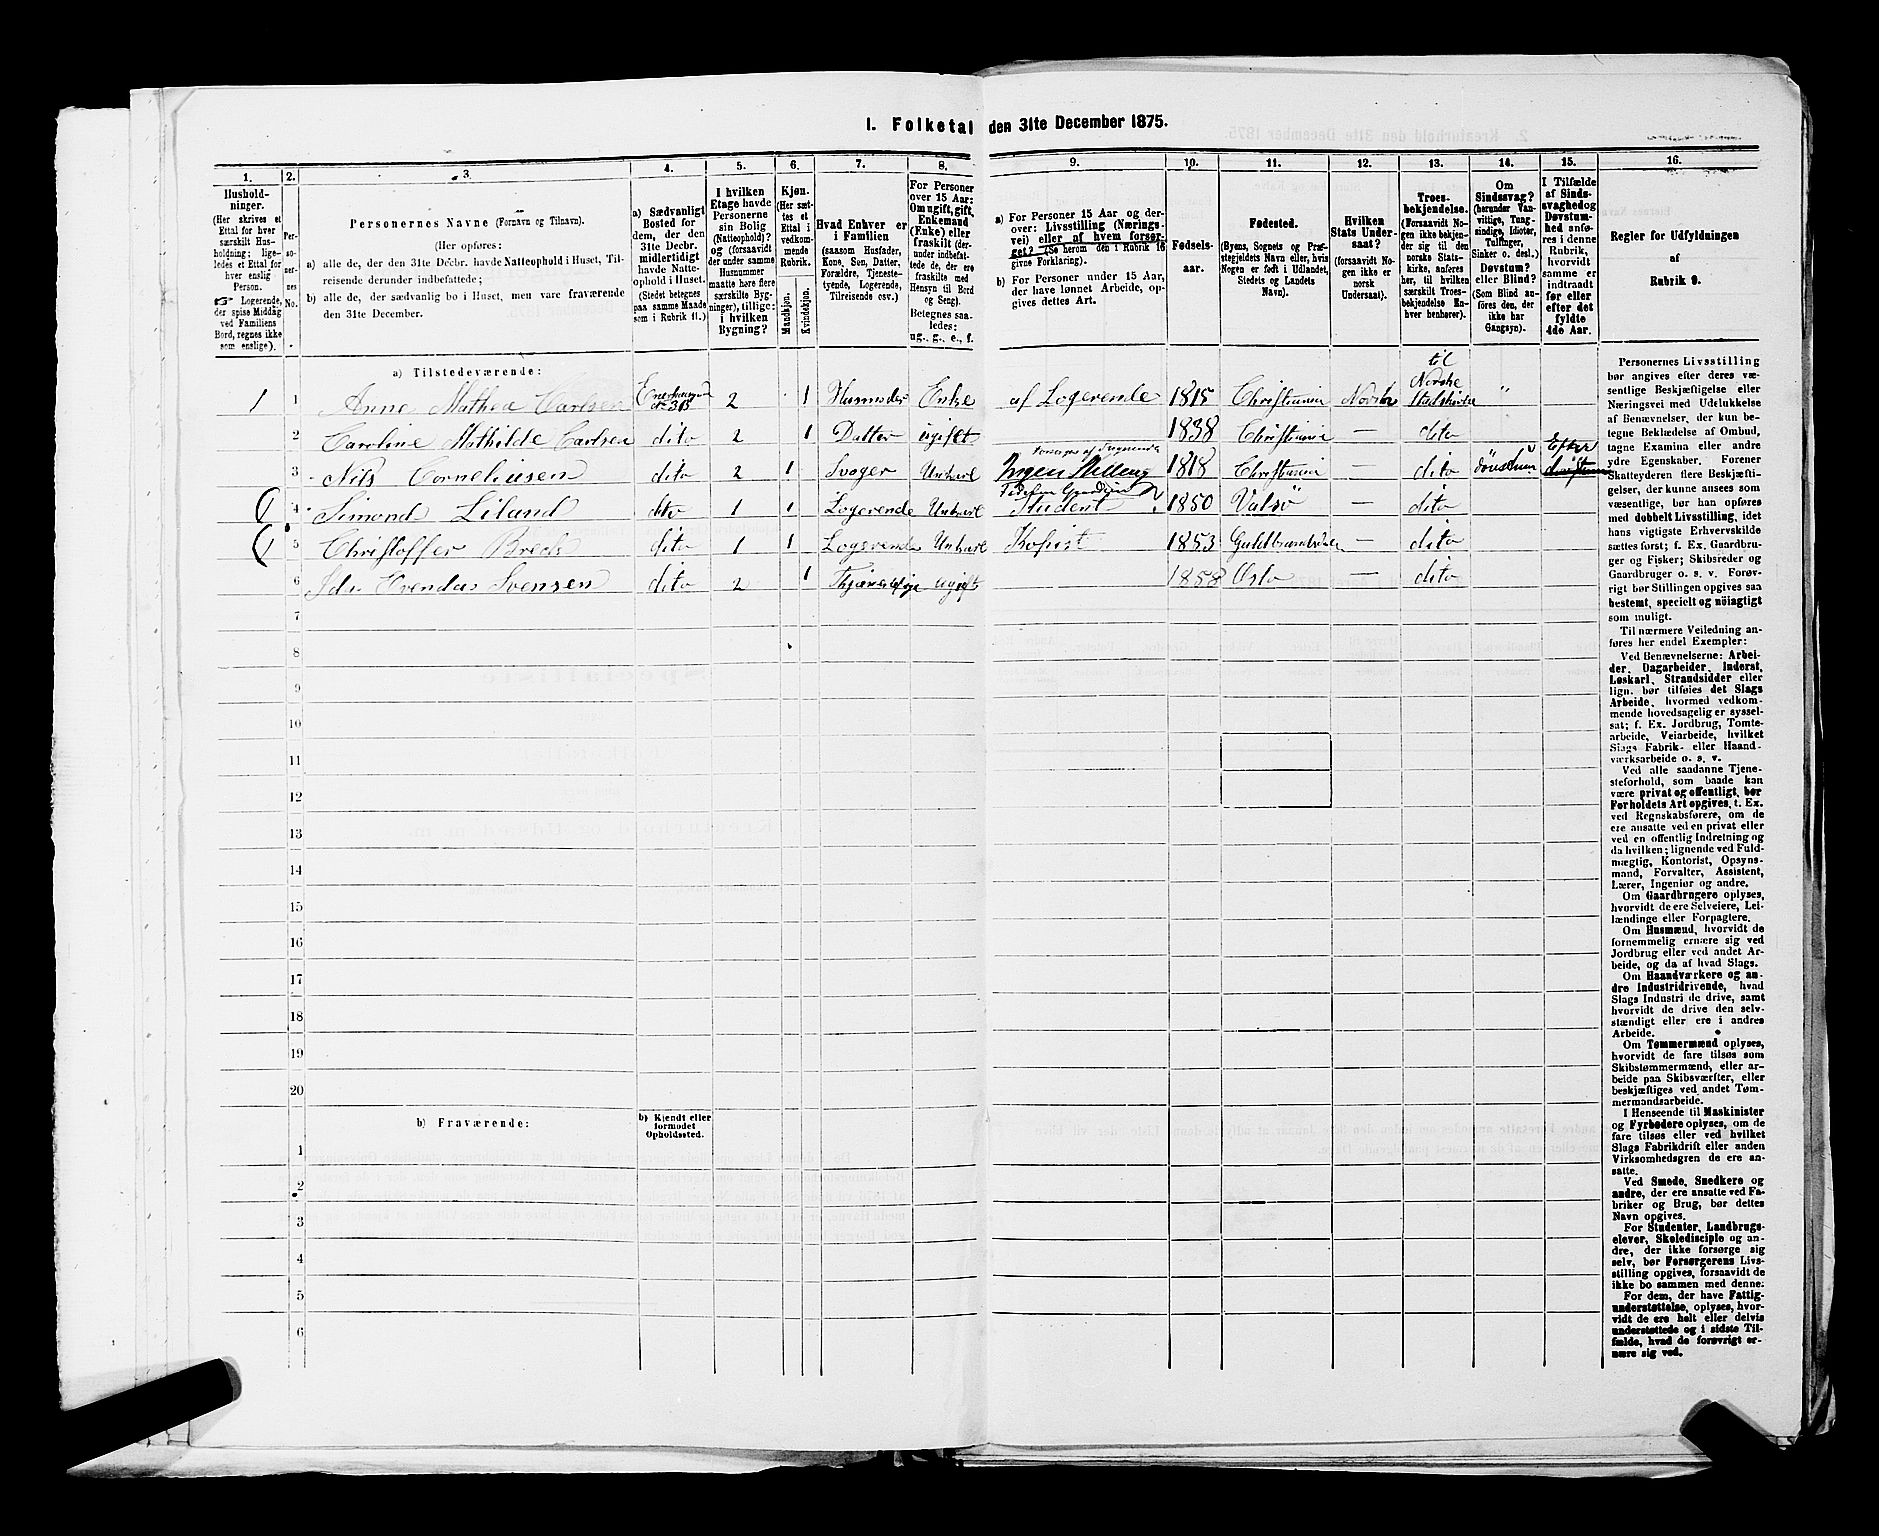 1. Folketal den 31te December 1875.
1. 2. 3. 4. 5. 6. 7. 8. 9. 10. 11. 12. 13. 14. 15. 16.
Hushold-
ninger.
(Her skrives et
Ettal for hver
særskilt Hus-
holdning; lige-
ledes et Ettal for
hver enslig
Person.
☞ Logerende,
der spise Middag
ved Familiens
Bord, regnes ikke
som enslige).
Per-
so-
ner-
nes
No.
Personernes Navne (Fornavn og Tilnavn).
(Her opføres:
a) alle de, der den 31te Decbr. havde Natteophold i Huset, Til-
reisende derunder indbefattede;
b) alle de, der sædvanlig bo i Huset, men vare fraværende
den 31te December.
a) Sædvanligt
Bosted for
dem, der den
31te Decbr.
midlertidigt
havde Natte-
ophold i Huset.
(Stedet betegnes
paa samme Maade
som i Rubrik 11.)
I hvilken
Etage havde
Personerne
sin Bolig
(Natteophold)?
og (forsaavidt
der under samme
Husnummer
maatte høre flere
særskilte Byg-
ninger), tillige:
i hvilken
Bygning?
Kjøn.
(Her sæt-
tes et
Ettal i
vedkom-
mende
Rubrik.
Mandkjøn.
Kvindekjøn.
Hvad Enhver er
i Familien
(saasom Husfader,
Kone, Søn, Datter,
Forældre, Tjeneste-
tyende, Logerende,
Tilreisende osv.)
For Personer
over 15 Aar:
Om ugift, gift,
Enkemand
(Enke) eller
fraskilt (der-
under indbefat-
tede de, der ere
fraskilte med
Hensyn til Bord
og Seng).
Betegnes saa-
ledes:
ug., g., e., f.
a) For Personer 15 Aar og der-
over: Livsstilling (Nærings-
vei) eller af hvem forsør-
get? (Se herom den i Rubrik 16
givne Forklaring).
b) For Personer under 15 Aar,
der have lønnet Arbeide, op-
gives dettes Art.
Fødsels-
aar.
Fødested.
(Byens, Sognets og Præ-
stegjeldets Navn eller, hvis
Nogen er født i Udlandet,
Stedets og Landets
Navn).
Hvilken
Stats Under-
saat?
(forsaavidt No-
gen ikke er
norsk
Undersaat).
Troes-
bekjendelse.
(Forsaavidt No-
gen ikke bekjen-
der sig til den
norske Stats-
kirke, anføres
her, til hvilken
særskilt Troes-
bekjendelse En-
hver henhører).
Om
Sindssvag?
(herunder Van-
vittige, Tung-
sindige, Idioter,
Tullinger,
Sinker o. desl.)
Døvstum?
eller Blind?
(Som Blind an-
føres den, der
ikke har
Gangsyn).
I Tilfælde
af Sinds-
svaghed og
Døvstum-
hed anfø-
res i denne
Rubrik,
hvorvidt
samme er
indtraadt
før eller
efter det
fyldte
4de Aar.
Regler for Udfyldningen
af
Rubrik 9.
a) Tilstedeværende:
til
1 1 Anne Mathea Carlsen 2 1 Husmoder Enke af Logerende 1815 Christiania Norske Norske Statskirke "
2 Caroline Mathilde Carlsen dito 2 1 Datter ugift 1838 Christiania dito
3 Nils Corneliusen dito 2 1 Svoger 1818 Christiania — dito Efter
4 Simond Liland dito 1 1 Logerende Student 1850 Valsö — dito
5 Christoffer Breds dito 1 1 Logerende Kopist 1853 Guldbrandsdalen — dito
6 Svensen dito 2 1 ugift 1858 Oslo — dito
7
8
9
10
11
12
13
14
15
16
17
18
19
20
b) Fraværende:
b) Kjendt eller
formodet
Opholdssted.
1
2
3
4
5
6
Personernes Livsstilling
bør angives efter deres væ-
sentlige Beskjæftigelse eller
Næringsvei med Udelukkelse
af Benævnelser, der kun be-
tegne Beklædelse af Ombud,
tagne Examina eller andre
ydre Egenskaber. Forener
Skatteyderen flere Beskjæfti-
gelser, der kunne ansees som
væsentlige, bør han opføres
med dobbelt Livsstilling, idet
hans vigtigste Erhvervskilde
sættes først; f. Ex. Gaardbru-
ger og Fisker; Skibsreder og
Gaardbruger o. s. v. Forøv-
rigt bør Stillingen opgives saa
bestemt, specielt og nöiagtigt
som muligt.
Til nærmere Veiledning an-
føres her endel Exempler:
Ved Benævnelserne: Arbei-
der, Dagarbeider, Inderst,
Løskarl, Strandsidder eller
lign. bør tilføies det Slags
Arbeide, hvormed vedkom-
mende hovedsagelig er syssel-
sat; f. Ex. Jordbrug, Tomte-
arbeide, Veiarbeide, hvilket
Slags Fabrik- eller Haand-
værksarbeide o. s. v.
Ved alle saadanne Tjene-
steforhold, som baade kan
være privat og offentligt, bør
Forholdets Art opgives, t. Ex.
ved Regnskabsførere, om de
ere ansatte ved en privat eller
ved en offentlig Indretning og
da hvilken; lignende ved Fuld-
mægtig, Kontorist, Opsyns-
mand, Forvalter, Assistent,
Lærer, Ingeniør og andre.
Om Gaardbrugere oplyses,
hvorvidt de ere Selveiere, Lei-
lændinge eller Forpagtere.
Om Husmænd, hvorvidt de
fornemmelig ernære sig ved
Jordbrug eller ved andet Ar-
beide, og da af hvad Slags.
Om Haandværkere og an-
dre Industridrivende, hvad
Slags Industri de drive, samt
hvorvidt de drive den selv-
stændigt eller ere i andres
Arbeide.
Om Tømmermænd oplyses,
hvorvidt de fare tilsøs som
Skibstømmermænd, eller ar-
beide paa Skibsværfter, eller
beskjæftiges ved andet Tøm-
mermandsarbeide.
I Henseende til Maskinister
og Fyrbødere oplyses, om de
fare tilsøs eller ved hvilket
Slags Fabrikdrift eller anden
Virksomhedsgren de ere an-
satte.
Ved Smede, Snedkere og
andre, der ere ansatte ved Fa-
briker og Brug, bør dettes
Navn opgives.
For Studenter, Landbrugs-
elever, Skoledisciple og an-
dre, der ikke forsørge sig
selv, bør Forsørgerens Livs-
stilling opgives, forsaavidt de
ikke bo sammen med denne.
For dem, der have Fattig-
understøttelse, oplyses, hvor-
vidt de ere helt eller delvis
understøttede og i sidste Til-
fælde, hvad de forøvrigt er-
nære sig ved.